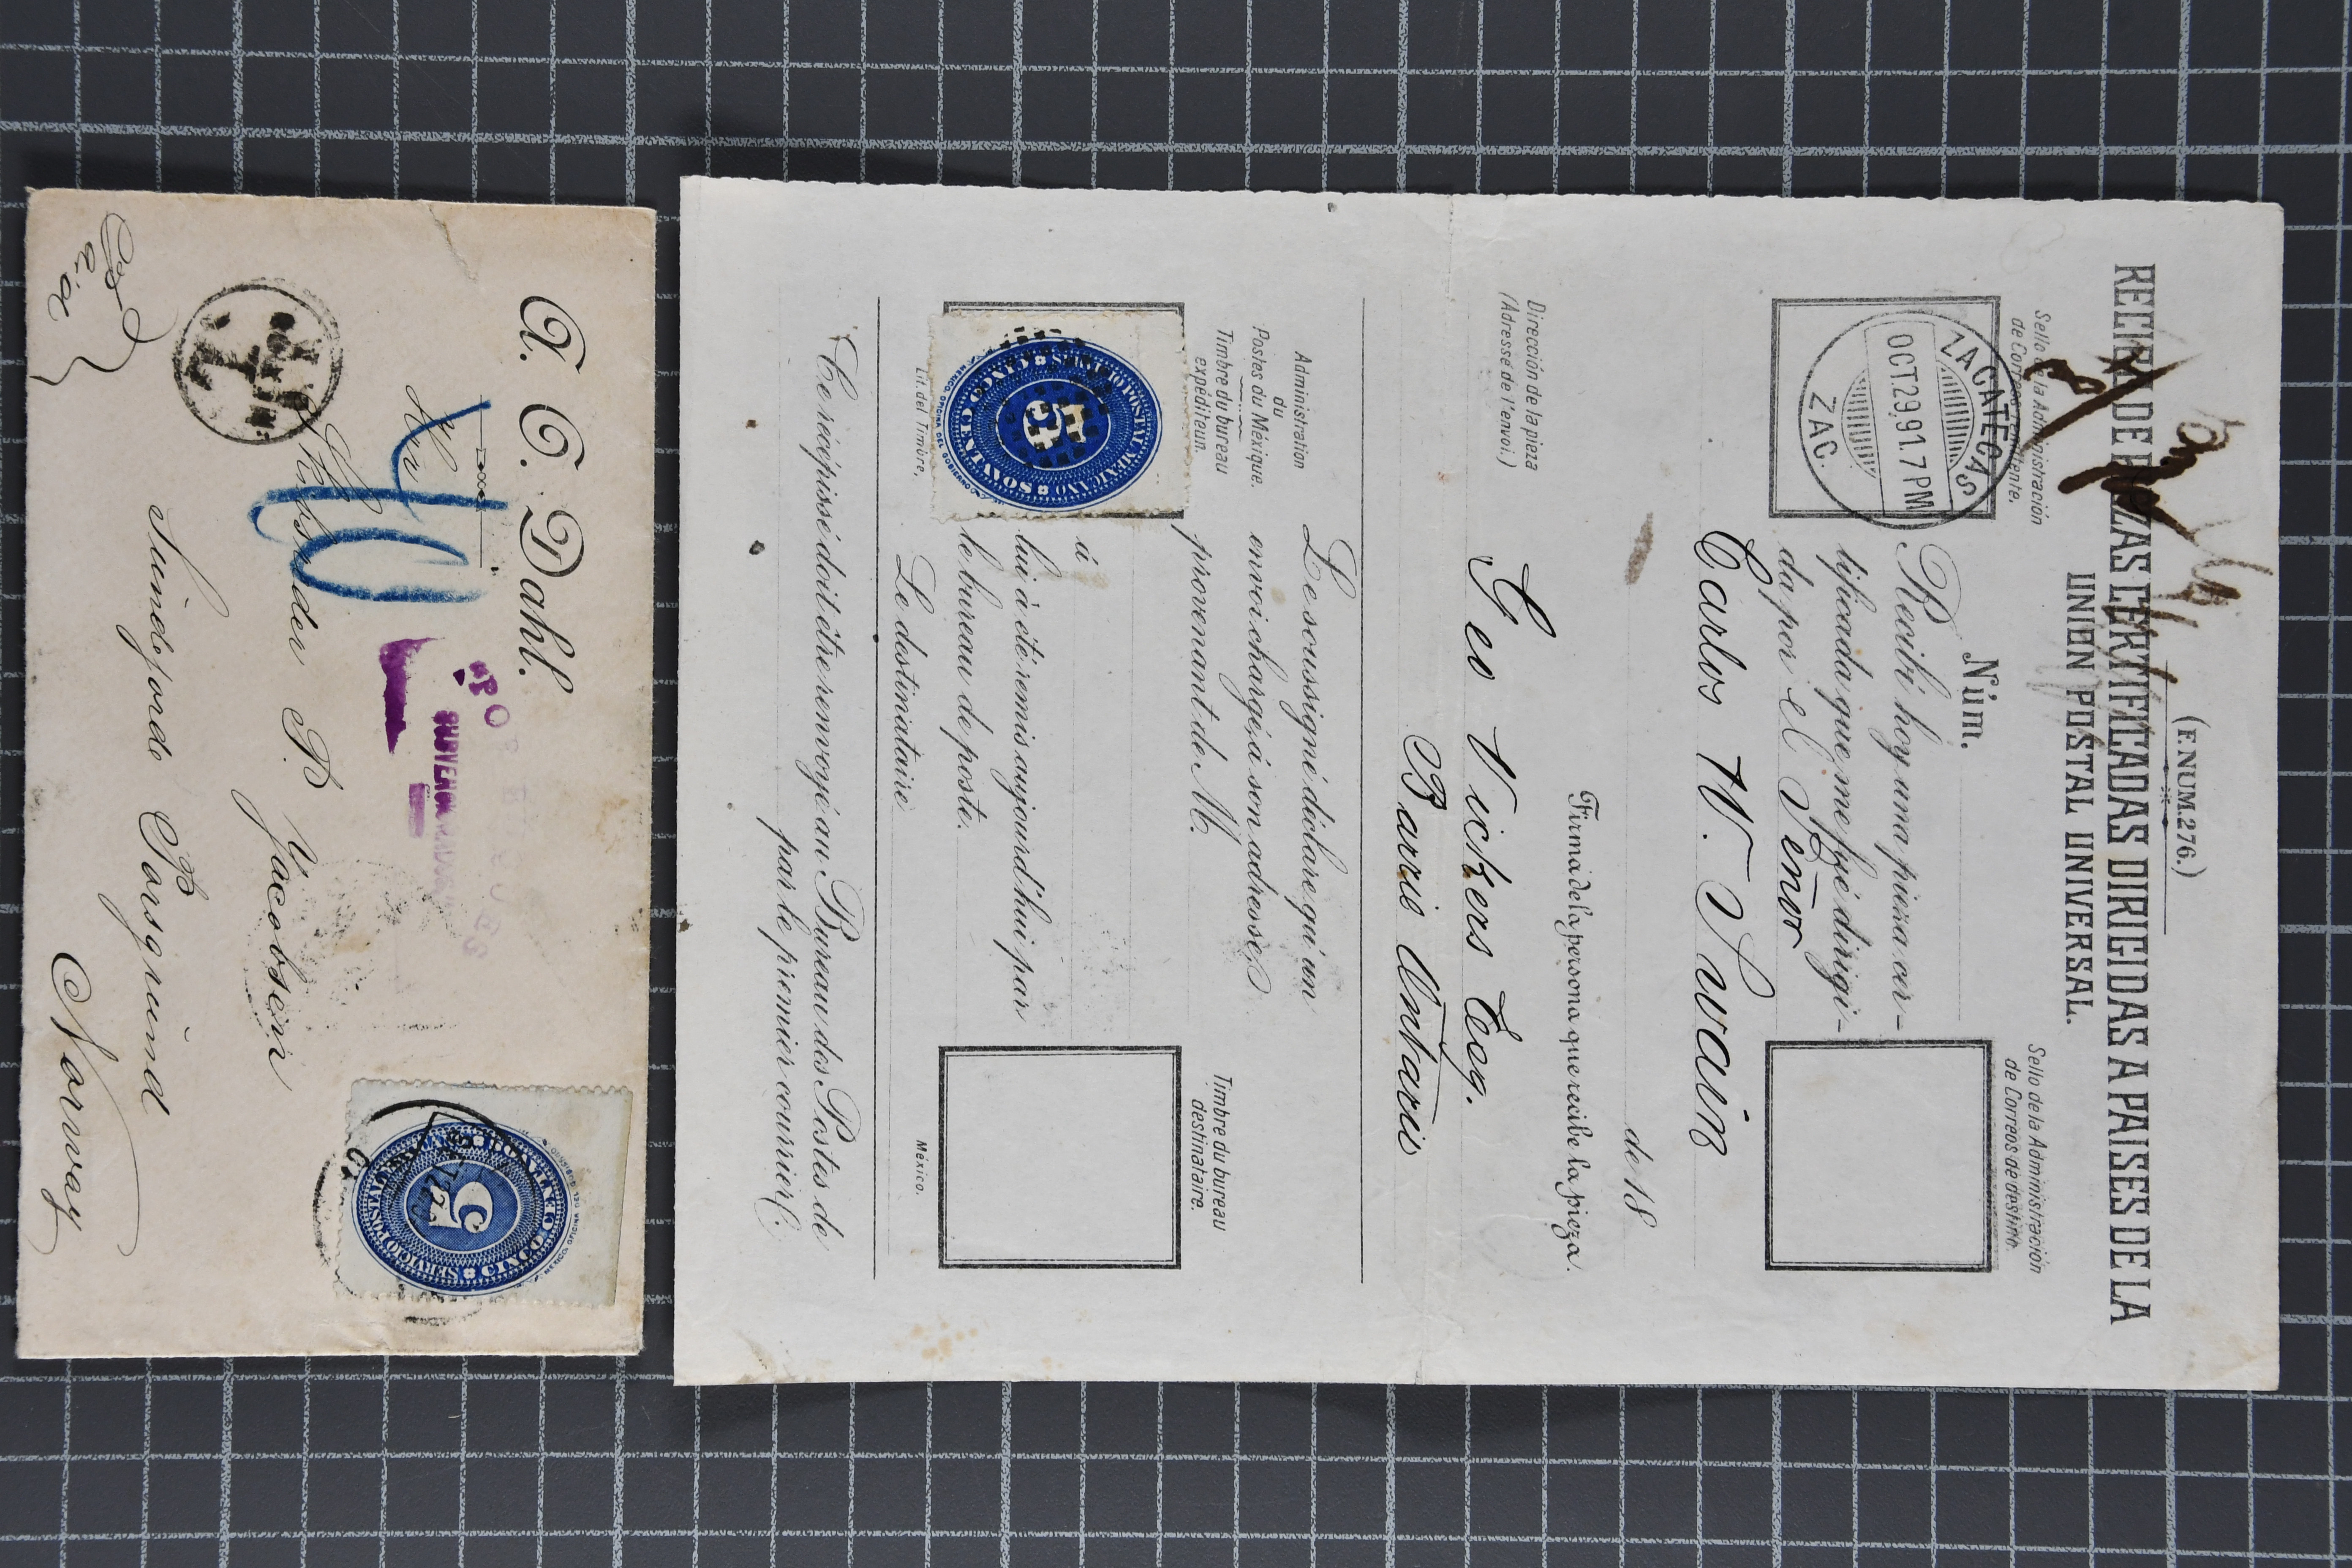 (ENUM. 276.)
RECIBO DE PIEZAS CERTIFICADAS DIRIGIDAS A PAISES DE LA
UNION POSTAL UNIVERSAL.
Sello de la Administración
de Correos remitente.
Sello de la Administración
de Correos de destino.
ZACATECAS
OCT 29, 91. 7 PM
ZAC.
Núm.
Recibí hoy una pieza cer-
tificada que me fué dirigi-
da por el Señor
Carlos W. Swain
de 18
Firma de la persona que recibe la pieza.
Dirección de la pieza
(Adresse de l'envoi.)
Geo Vickers Eeq.
Barrie Ontario
Administration
du
Postes du Méxique.
Timbre du bureau
expéditeun.
Le soussigné déclare qu'un
envoi chargé, á son adresse,
provenant de M.
á
lui á été remis aujourd'hui par
le bureau de poste.
Le destinataire
Timbre du bureau
destinataire.
SERVICIO POSTAL MEXICANO
5
CINCO CENTAVOS
Lit. del Timbre.
México.
Ce récépissé doit étre renvoyé au Bureau des Postes de
par le premier courrier.
A. C. Dahl.
Hr
40
T
P. Jacobsen
Porsgrund
Norway
5
SERVICIO POSTAL
CINCO